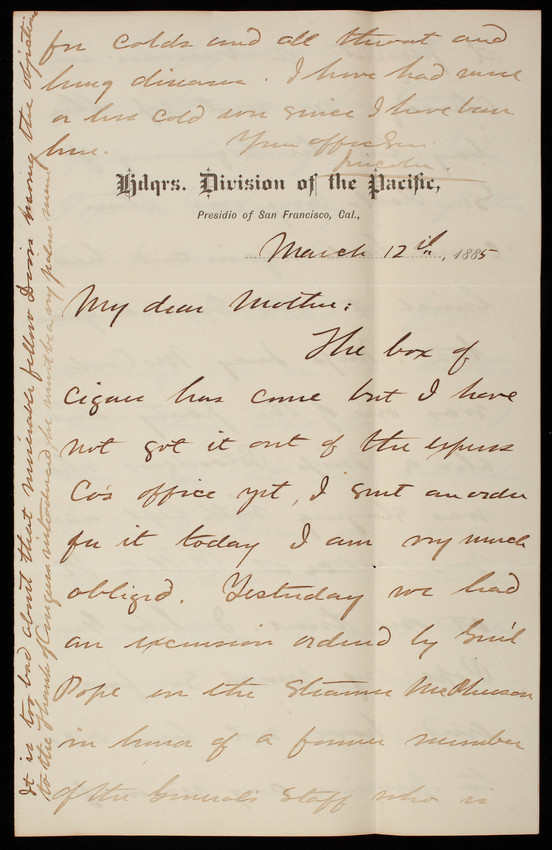 for colds and all throat and
lung diseases. I have had more
or less cold ever since I have been
here. Your affec Son
Lincoln
Hdqrs. Division of the Pacific,
Presidio of San Francisco, Cal.,
March 12th, 1885
My dear Mother:
The box of
cigars has come but I have
not got it out of the express
Co's office yet, I sent an order
for it today I am very much
obliged. Yesterday we had
an excursion ordered by Gen'l
Pope on the Steamer McPherson
in honor of a former member
of the General's Staff who is
It is too bad about that miserable fellow Dorn making the objection
to the thanks of Congress introduced he must be a very mean